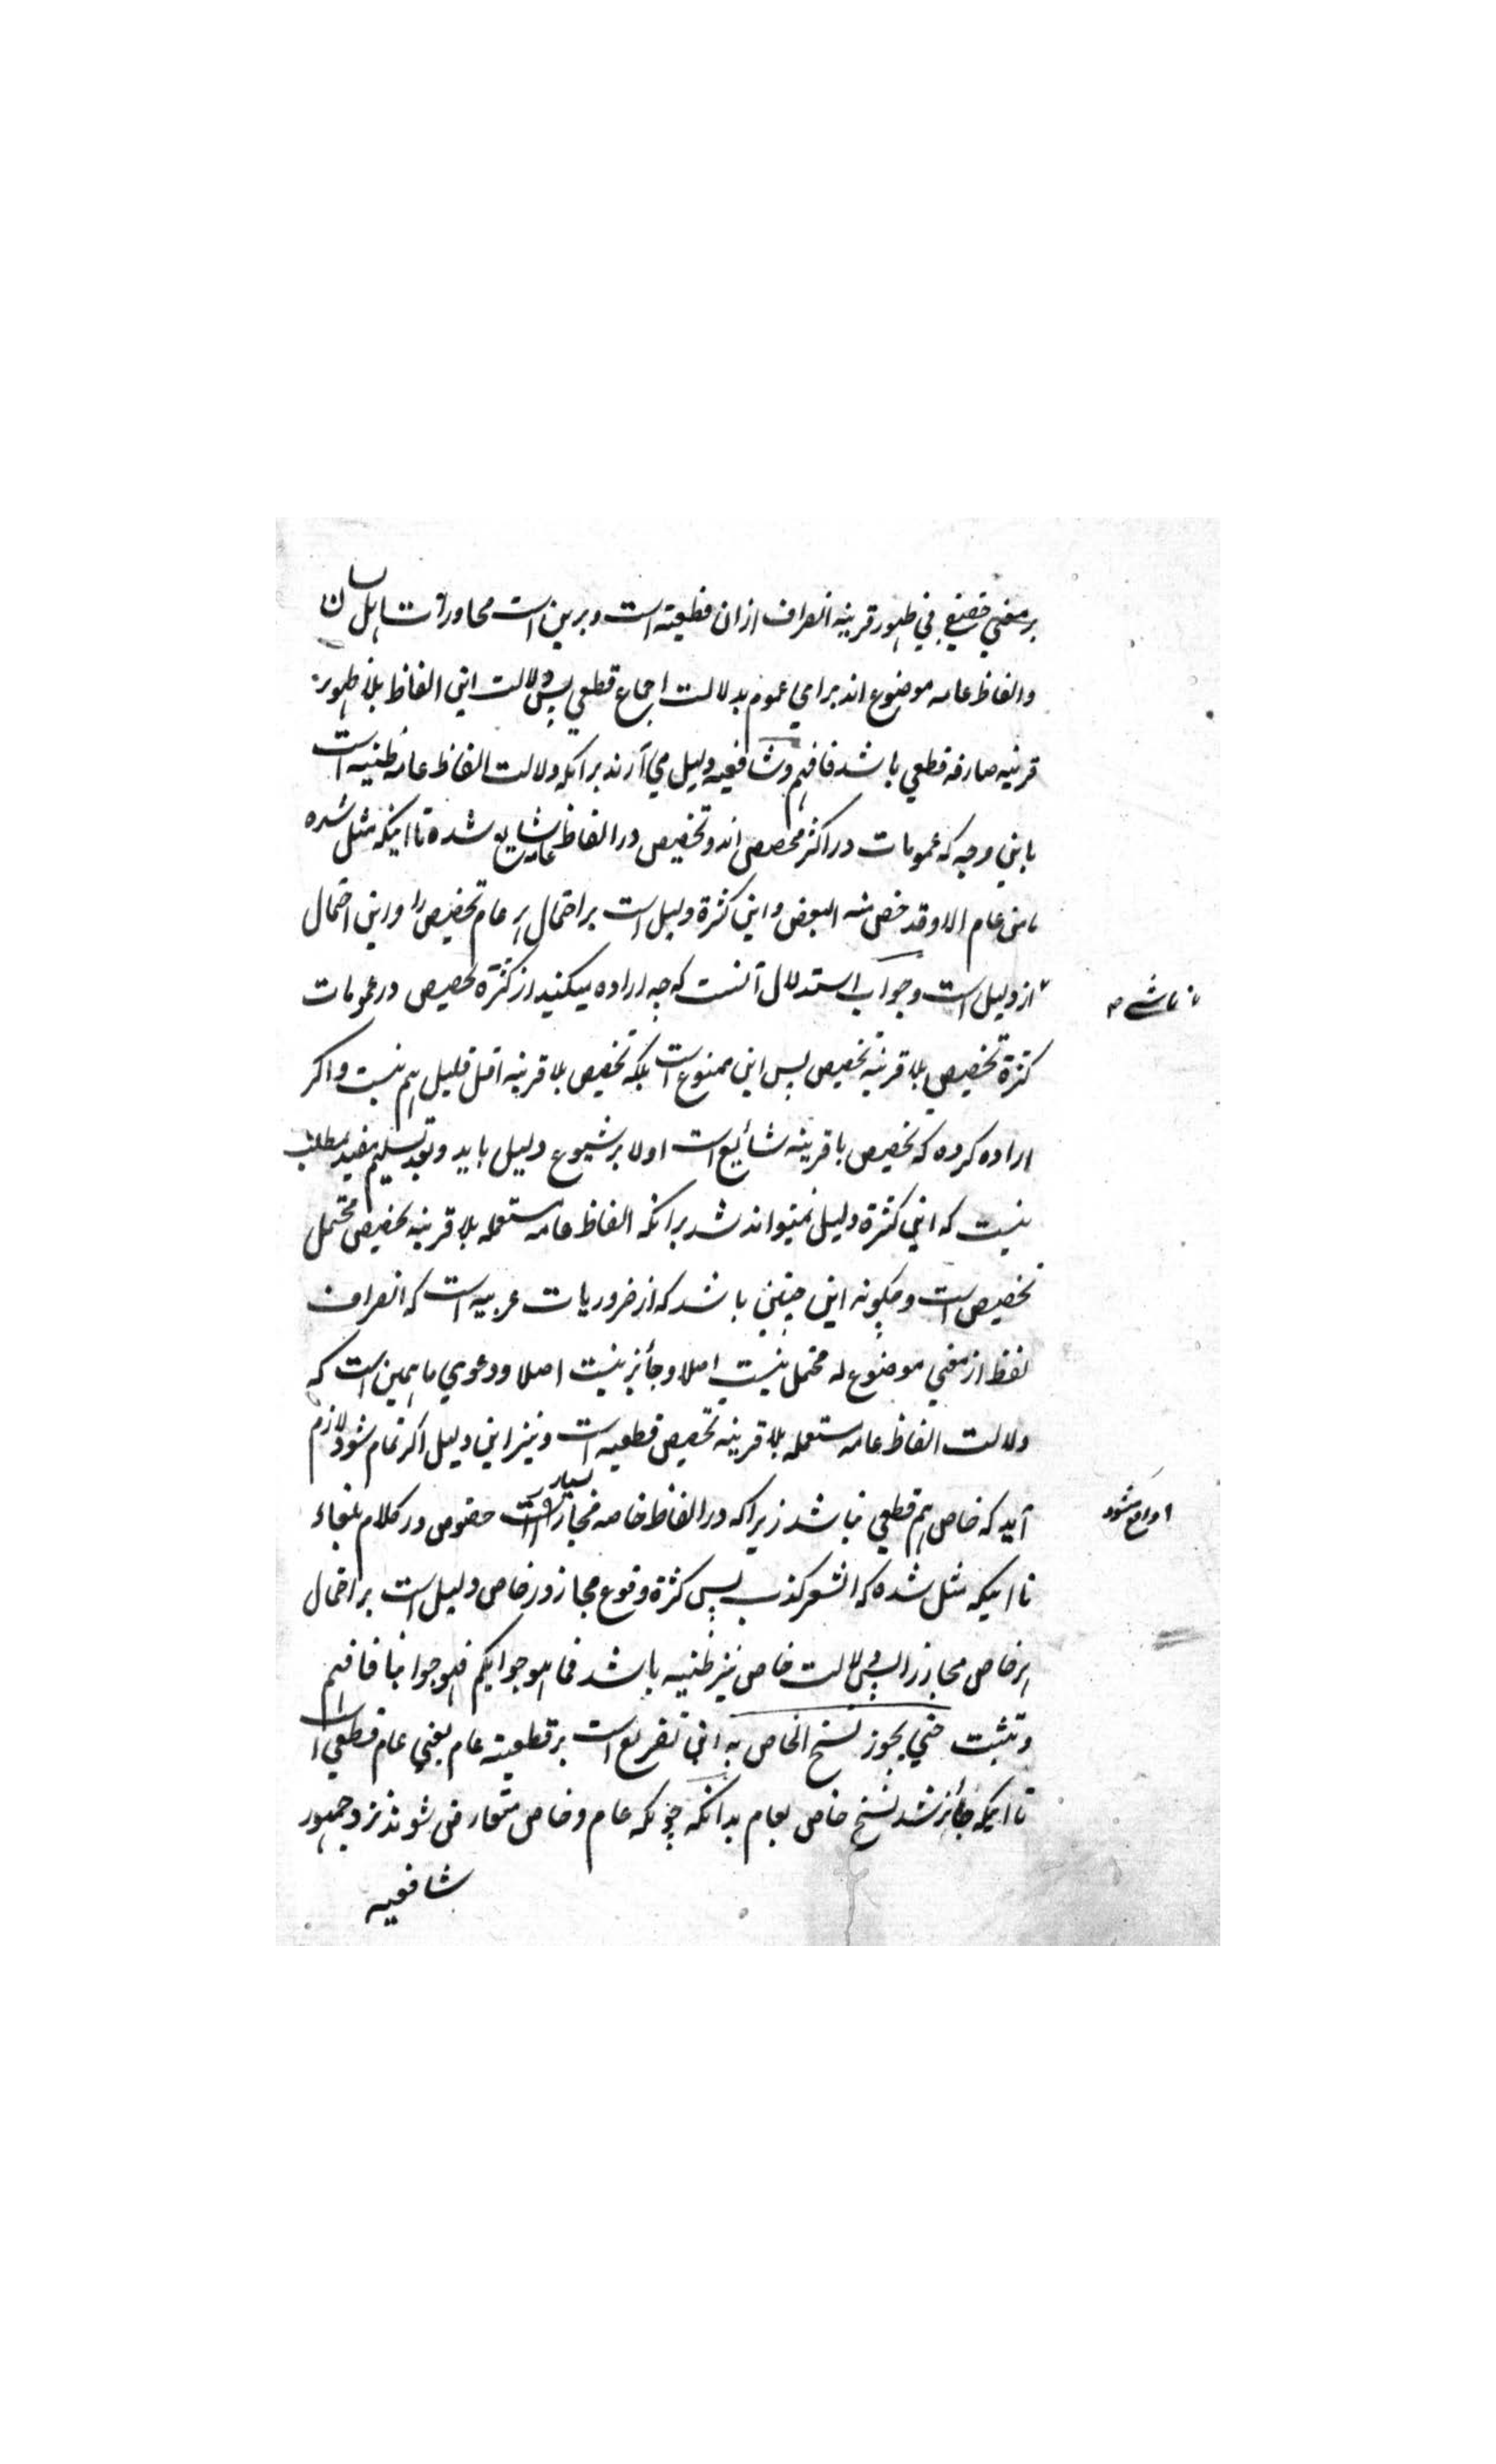 بر معني حقيقي في ظهور قرينه انصراف ازان قطعيته است و برين است محاورات اهل لسان
والفاظ عامه موضوع اند براي عموم بدلالت اجماع قطعي پس دلالت اين الفاظ بلا ظهور
قرينه صارفه قطعي باشد فافهم وشافعيه دليل مي آرند برانكه دلالت الفاظ عامه ظنيه است
باين وجه كه عمومات در اكثر مخصص اند وتخصيص در الفاظ عامه شايع شده تا اينكه مثل شده
ما من عام الا وقد خص منه البعض و اين كثرة دليل است بر احتمال هر عام تخصيص را و اين احتمال
از دليل است وجواب استدلال آنست كه چه اراده ميكنيد از كثرة تخصيص در عمومات
ناشے
كثرة تخصيص بلا قرينه تخصيص پس اين ممنوع است بلكه تخصيص بلا قرينه اقل قليل هم نيست واكر
اراده كرده كه تخصيص با قرينه شائع است اولا بر شيوع دليل بايد وبعد تسليم مفيد مطلب
نيست كه اين كثرة دليل نميتواند شد برانكه الفاظ عامه مستعمله بلا قرينه تخصيص محتمل
تخصيص است و چكونه اين چنين باشد كه از ضروريات عربيه است كه انصراف
لفظ از معني موضوع له محتمل نيست اصلا وجائز نيست اصلا ودعوي ما همين است كه
دلالت الفاظ عامه مستعمله بلا قرينه تخصيص قطعيه است ونيز اين دليل اكر تمام شود لازم
آيد كه خاص هم قطعي نباشد زيرا كه در الفاظ خاصه مجاز بسيار است خصوص در كلام بلغاء
تا اينكه مثل شده كه الشعر كذب پس كثرة وقوع مجاز در خاص دليل است بر احتمال
هر خاص مجاز را پس دلالت خاص نيز ظنيه باشد فما هو جوابكم فهو جوابنا فافهم
وتثبت حتي يجوز نسخ الخاص به اين تفريع است بر قطعيته عام يعني عام قطعي است
تا اينكه جائز شد نسخ خاص بعام بدانكه چونكه عام وخاص متعارض شوند نزد جمهور
شافعيه